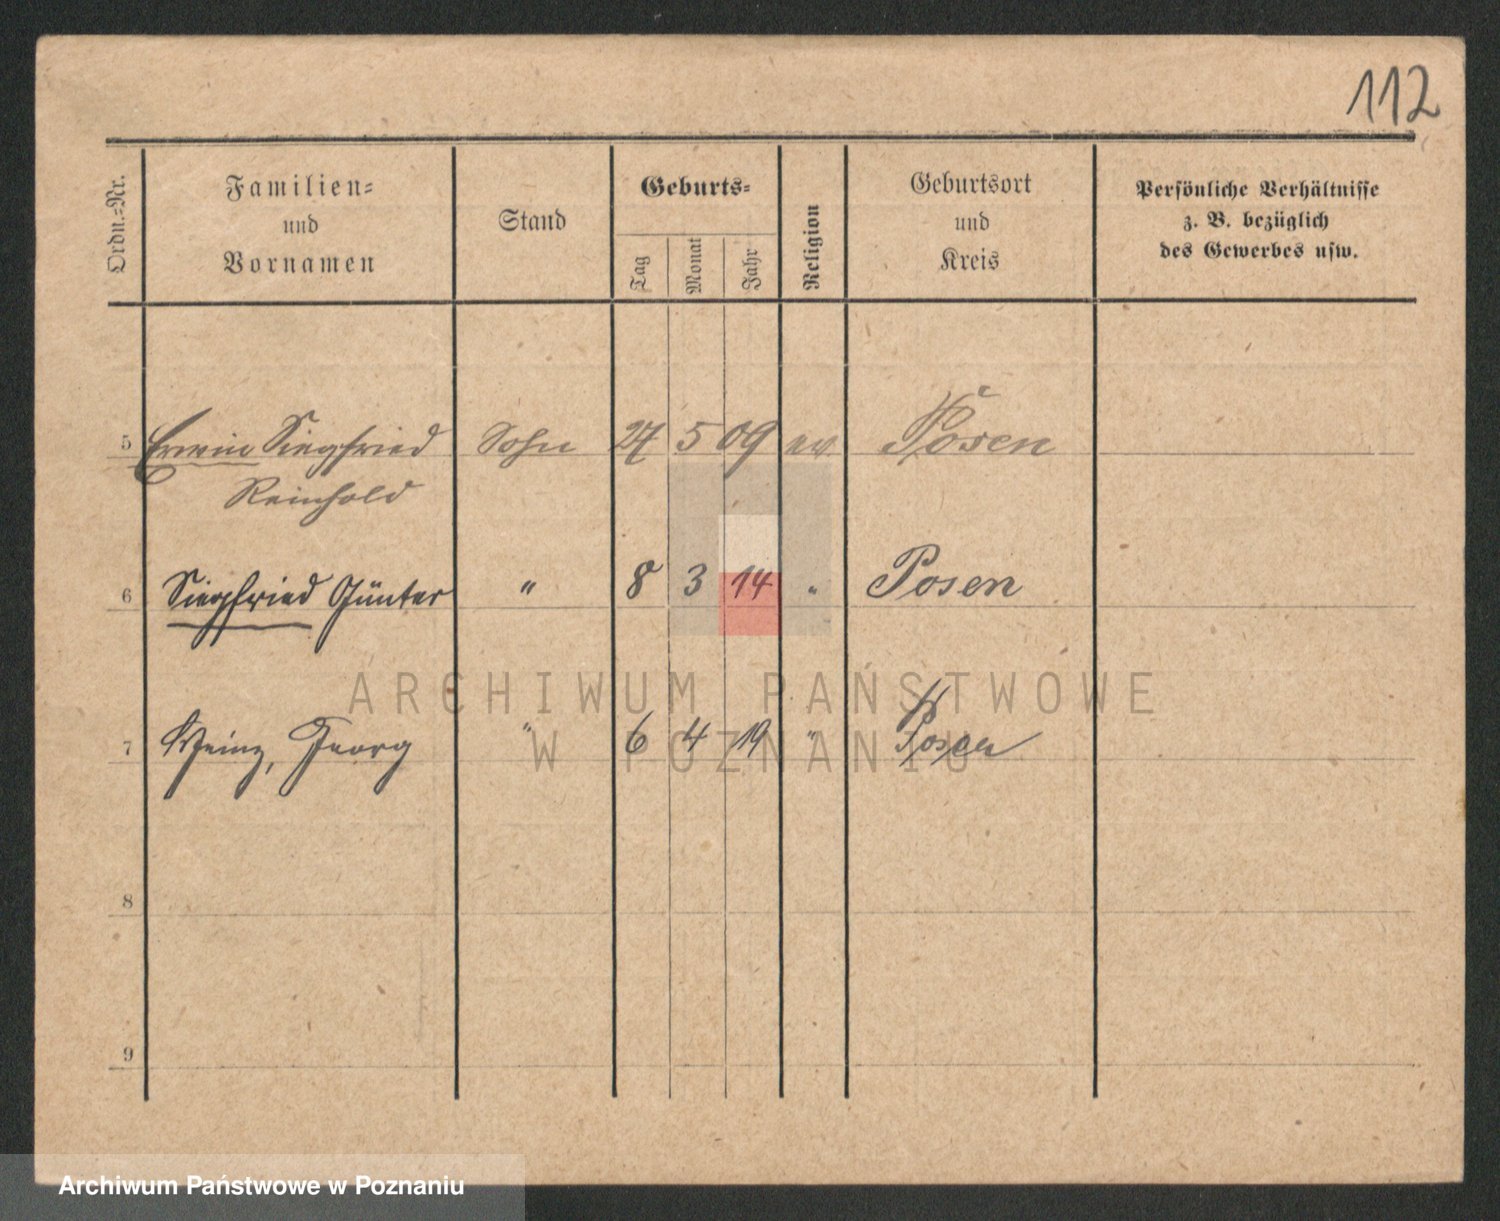 112
Ordn.-Nr.
Familien-
und
Vornamen
Stand
Geburts-
Tag
Monat
Jahr
Religion
Geburtsort
und
Kreis
Persönliche Verhältnisse
z. B. bezüglich
des Gewerbes usw.
5 Erwin Siegfried Sohn 27 5 09 ev. Posen
Reinhold
6 Siegfried Günter " 8 3 14 " Posen
7 Heinz, Georg " 6 4 19 " Posen
8
9
ARCHIWUM PAŃSTWOWE
W POZNANIU
Archiwum Państwowe w Poznaniu